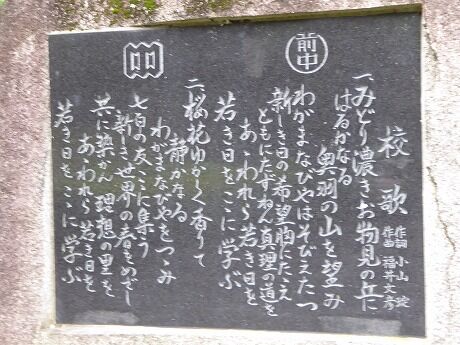 前中
校歌
作詞 小山
作曲 福井文彦
一、みどり濃きお物見の丘に
はるかなる
奥羽の山を望み
わがまなびやはそびえたつ
新しき日の希望胸にたえ
ともにたずねん真理の道を
あゝわれら若き日を
若き日をここに学ぶ
二、桜花ゆかしく香りて
静かなる
わがまなびやをつゝみ
七百の友ここに集う
新しき世界の春をめざし
共に築かん理想の里を
あゝわれら若き日を
若き日をここに学ぶ